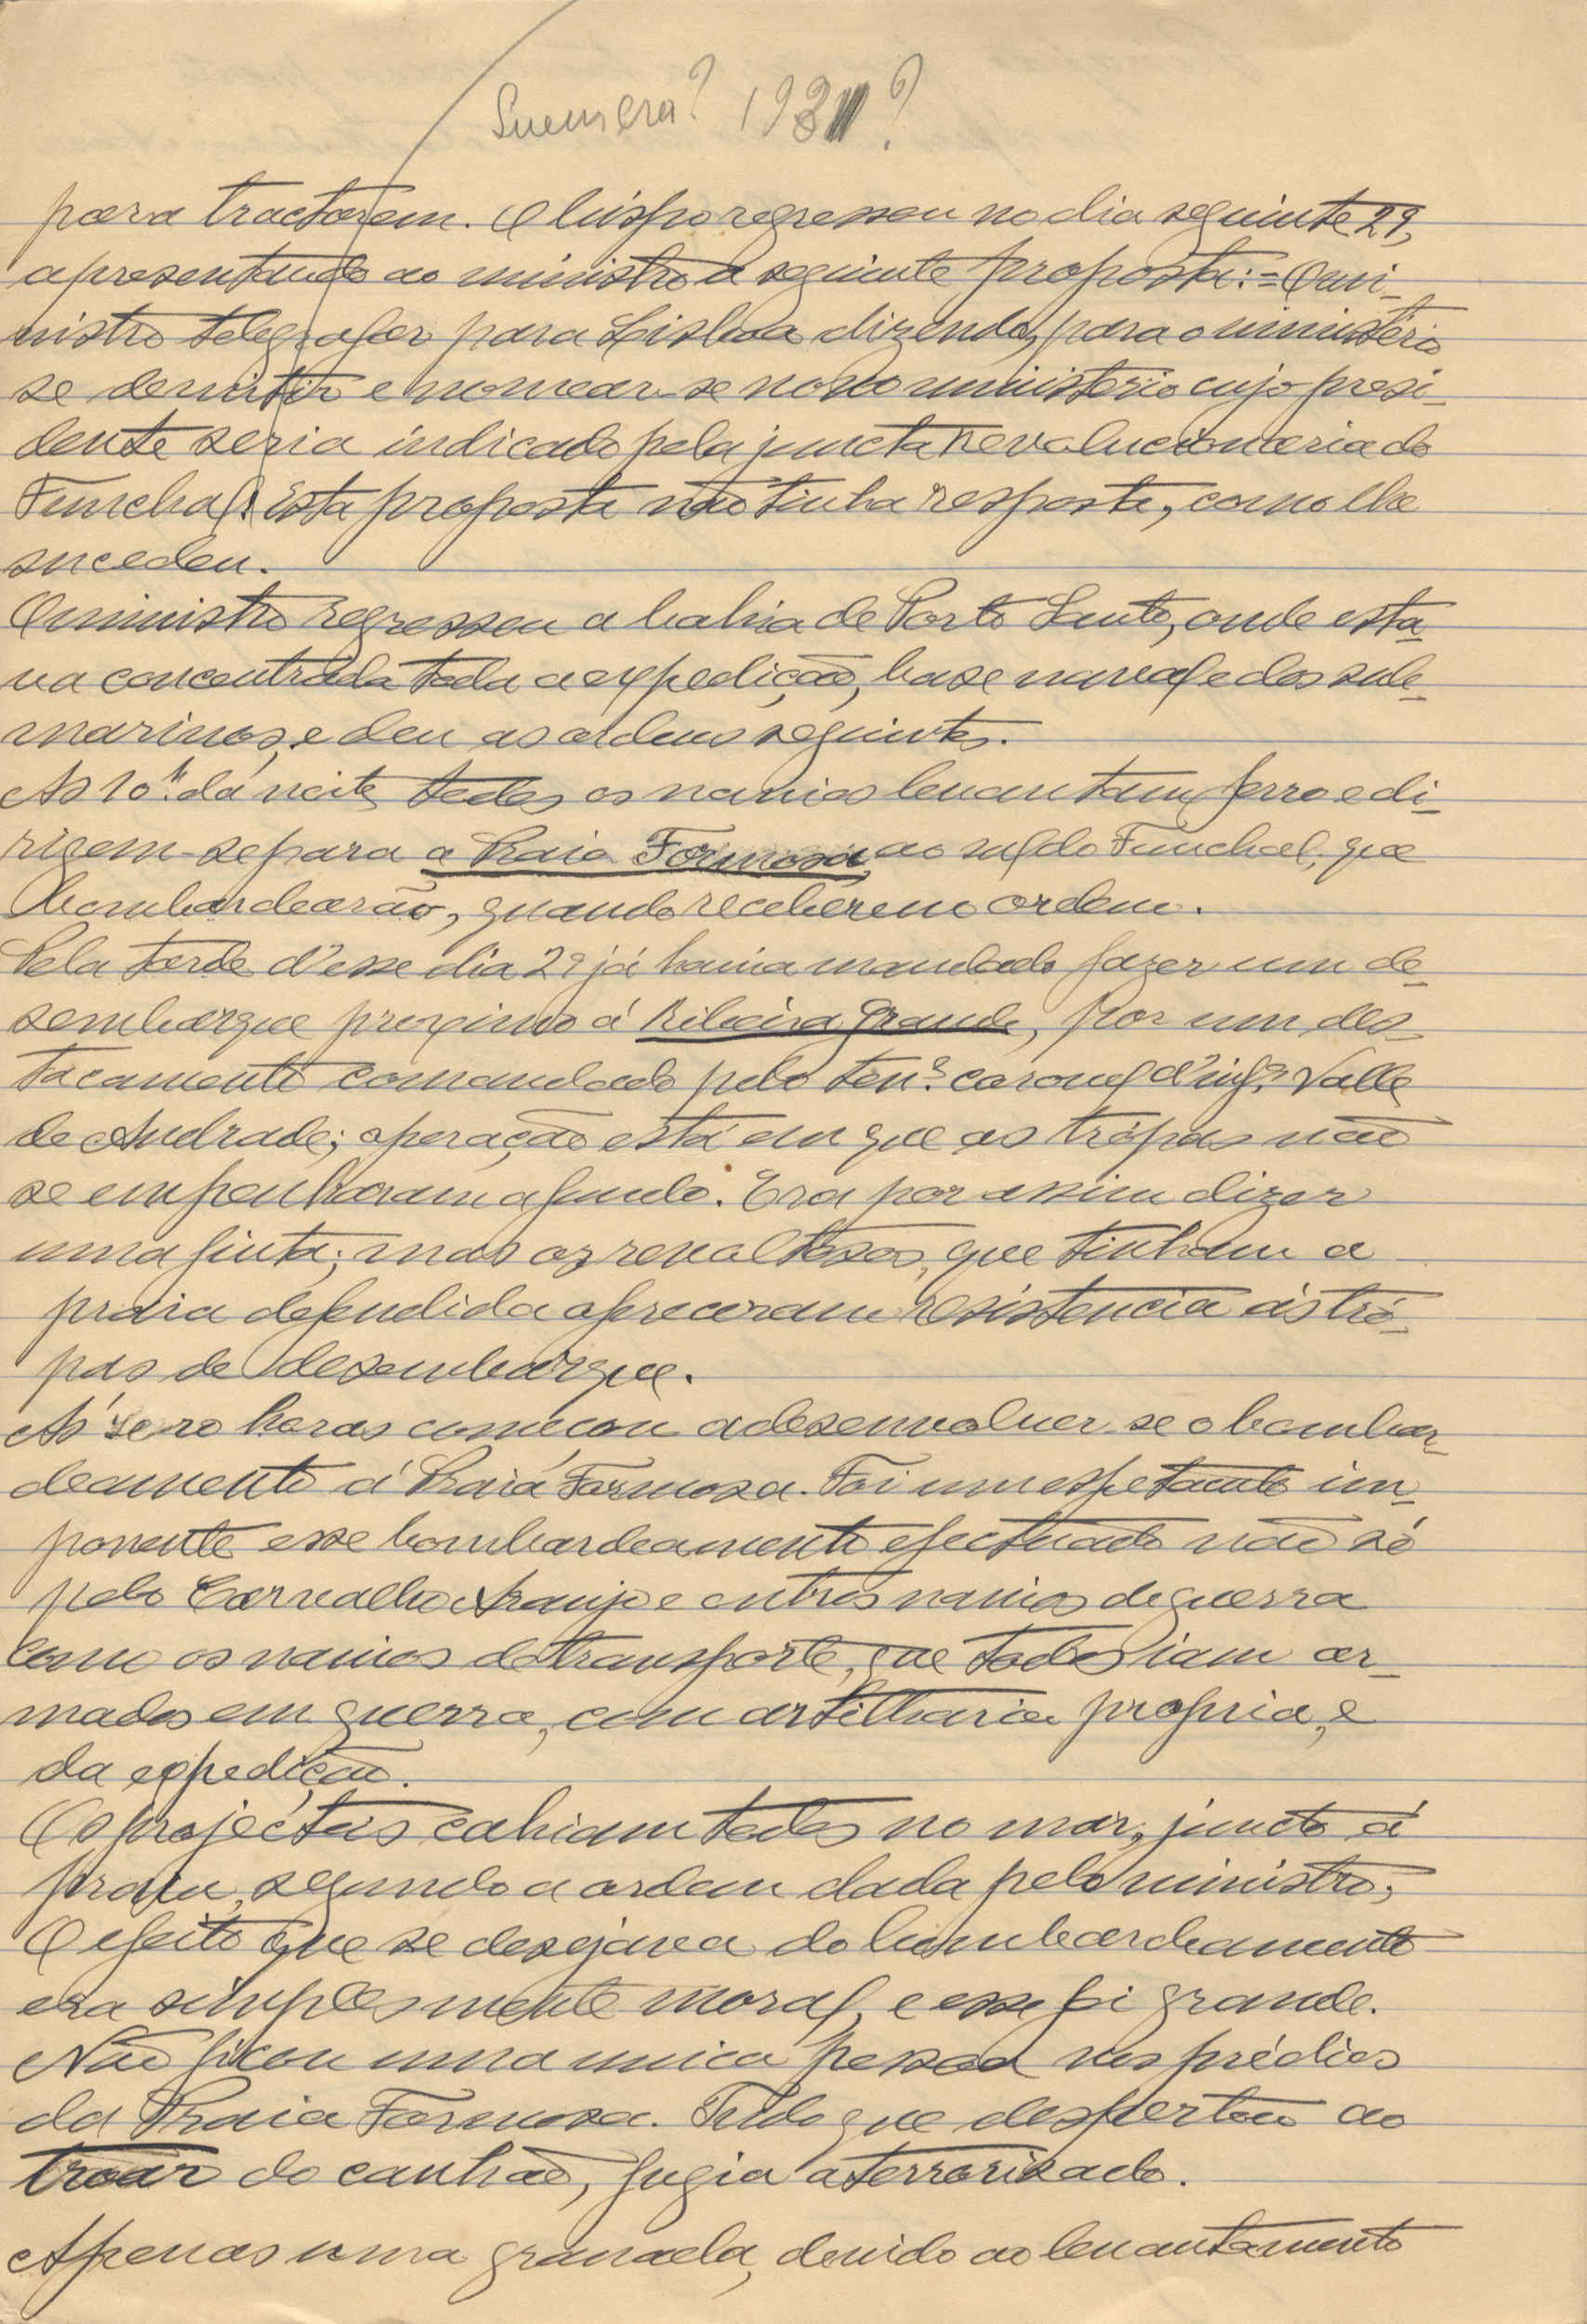 1931?
para tractarem. O bispo regressou no dia seguinte 29,
apresentando ao ministro a seguinte proposta:= O mi-
nistro telegrafar para Lisboa dizendo, para o ministério
se demittir e nomear-se novo ministerio cujo presi-
dente seria indicado pela juncta revolucionaria do
Funchal. Esta proposta não tinha resposta, como lhe
sucedeu.
O ministro regressou a bahia de Porto Santo, onde esta-
va concentrada toda a expedição, base naval e dos sub-
marinos, e deu as ordens seguintes.
As 10h. da noite todos os navios levantam ferro e di-
rigem-se para a Praia Formosa, ao sul do Funchal, que
bombardearão, quando receberem ordem.
Pela tarde d'esse dia 29 já havia mandado fazer um de-
sembarque proximo á Ribeira Grande, por um des-
tacamento comandado pelo ten.e coronel d'inf.a Valle
de Andrade; operação está em que as trópas não
se empenharam a fundo. Era por assim dizer
uma finta; mas os revoltosos, que tinham a
praia defendida ofreceram resistencia ás tró-
pas de desembarque.
As horas começou a desenvolver-se o bombar-
deamento á Praia Formosa. Foi um espetaculo im-
ponente esse bombardeamento efectuado não só
pelo Carvalho Araujo e outros navios de guerra
como os navios de transporte, que todos iam ar-
mados em guerra, com artilharia propria, e
da expedição.
Os projécteis cahiam todos no mar, juncto á
praia, segundo a ordem dada pelo ministro;
O efeito que se desejava do bombardeamento
era simplesmente moral, e esse foi grande.
Não ficou uma unica pessoa nos prédios
da Praia Formosa. Tudo que despertou ao
troar do canhão, fugia aterrorisado.
Apenas uma granada, devido ao levantamento